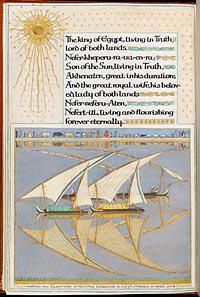 The king of Egypt, living in Truth,
lord of both lands,
Nefer·kheperu·ra·ua·en·ra,
Son of the Sun, living in Truth,
Akhenaten, great in his duration,
And the great royal wife, his belov-
ed, lady of both lands
Nefer·neferu·Aten,
Nefert·iti, living and flourishing
for ever eternally.